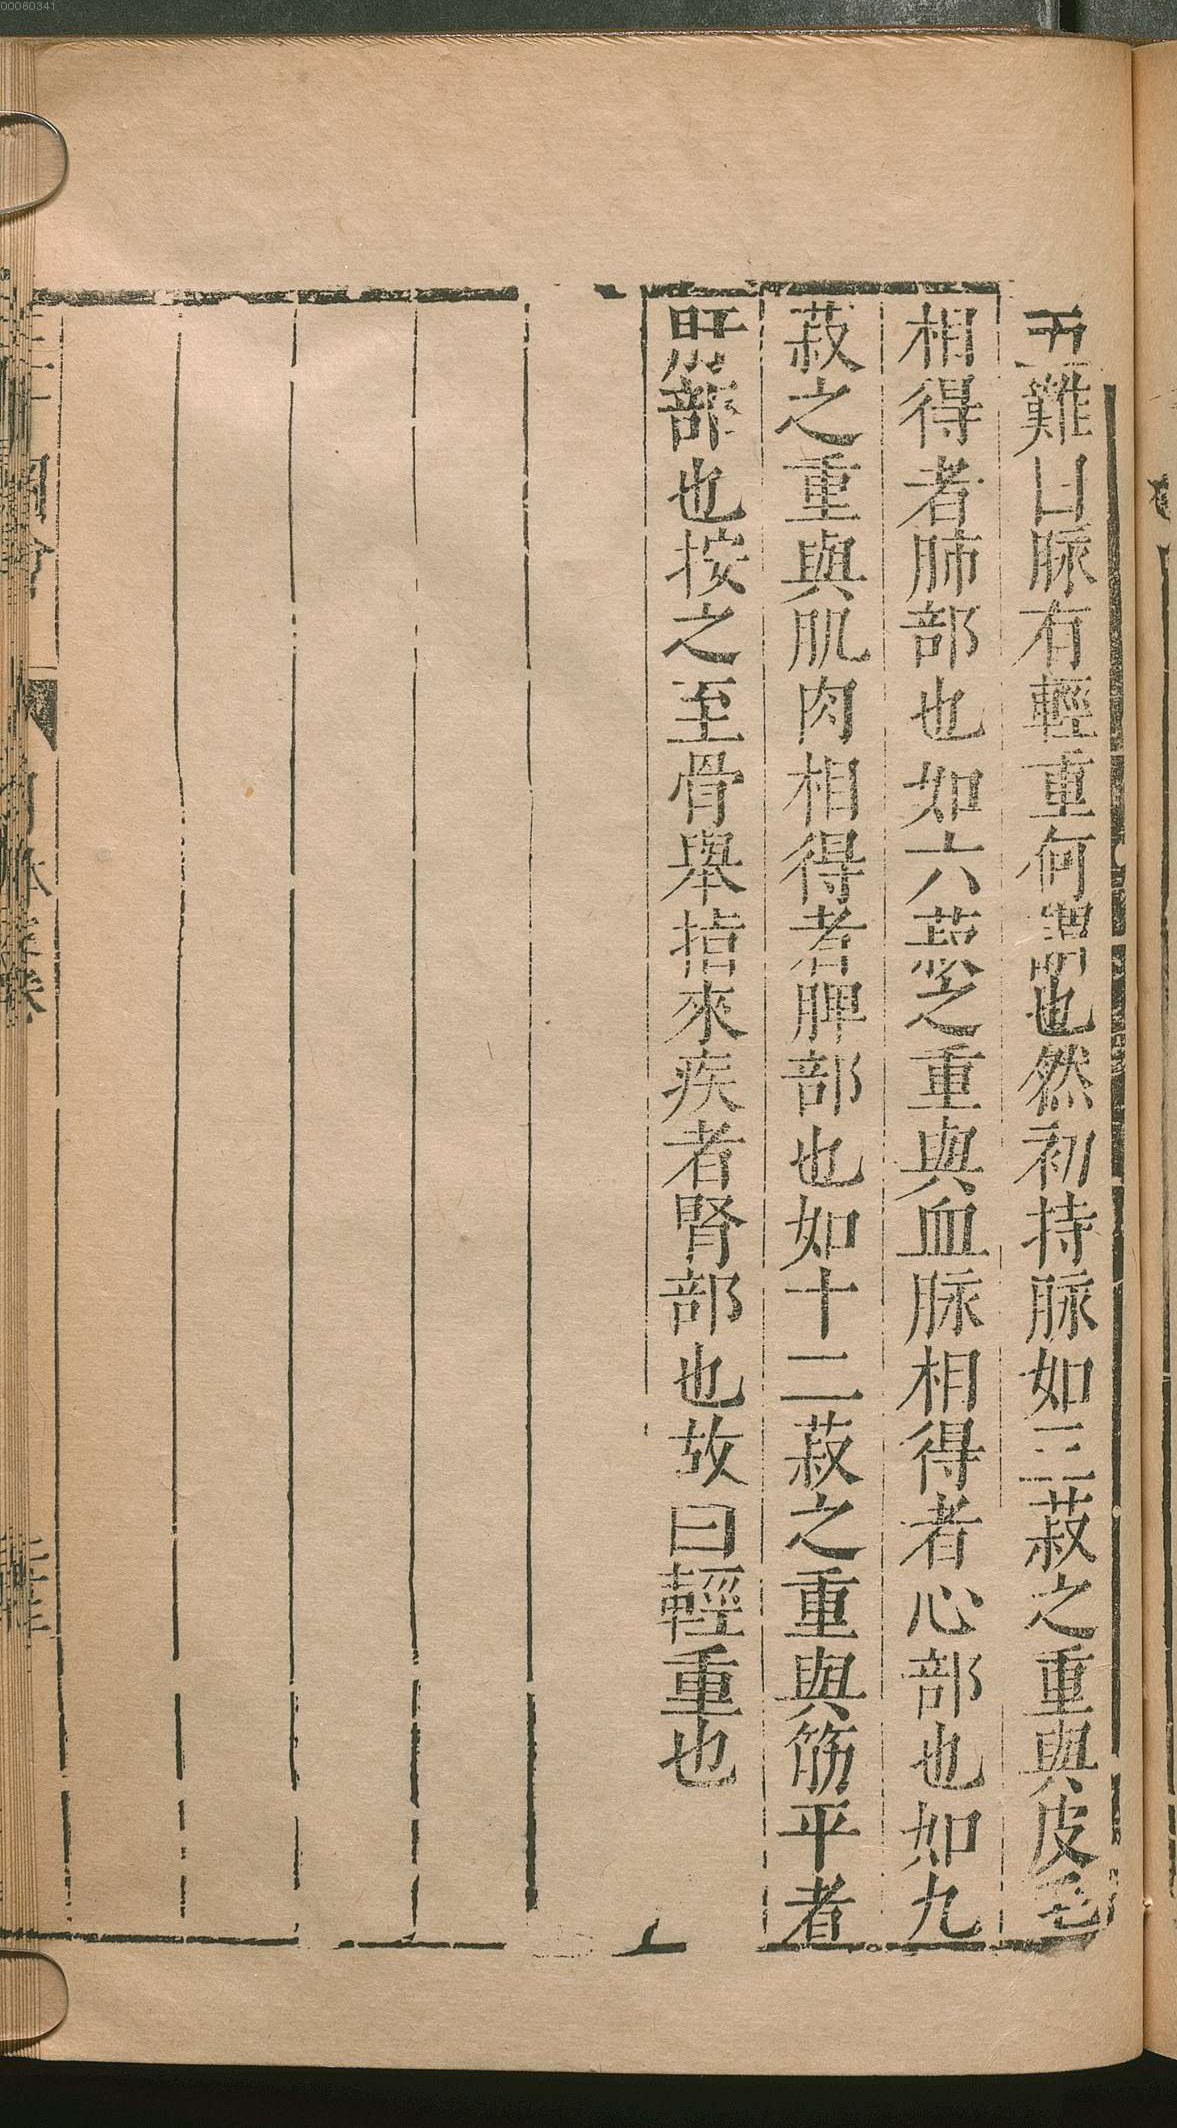 五難曰脉有輕重何謂也然初持脉如三菽之重與皮毛
相得者肺部也如六菽之重與血脉相得者心部也如九
菽之重與肌肉相得者脾部也如十二菽之重與筋平者
肝部也按之至骨舉指來疾者腎部也故曰輕重也
00060341